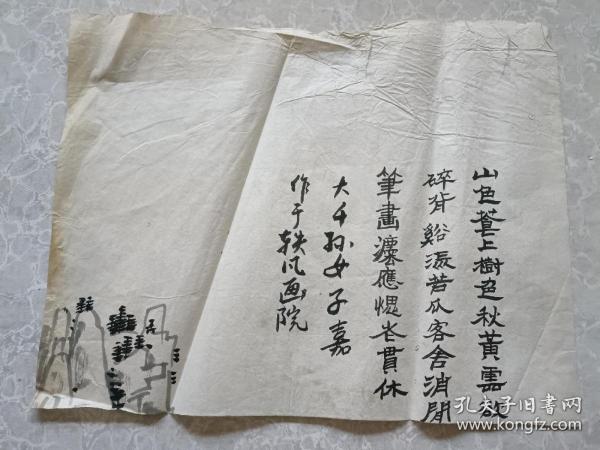 山色蒼上樹色秋黃雲放
碎背谿源苦瓜客舍消閒
筆畫瀍應愧老貫休
大千孙女子嘉
作于轶风画院
孔夫子旧书网
www.kongfz.com